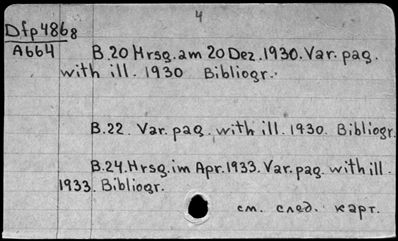 4
Dfp 4868
A664
B.20 Hrsg. am 20 Dez. 1930. Var. pag.
with ill. 1930 Bibliogr.
B.22. Var. pag. with ill. 1930. Bibliogr.
B.24. Hrsg. im Apr. 1933. Var. pag. with ill.
1933. Bibliogr.
см. след. карт.